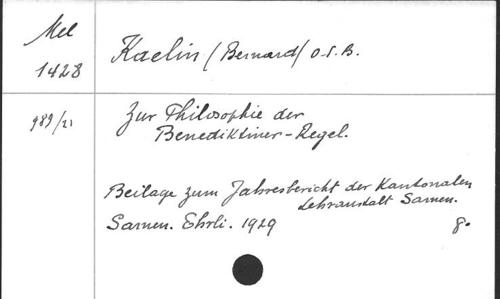 Mel
1428
Kaelin (Bernard) O.S.B.
989/21
Zur Philosophie der
Benediktiner-Regel.
Beilage zum Jahresbericht der Kantonalen
Lehranstalt Sarnen.
Sarnen. Ehrli. 1929
8.